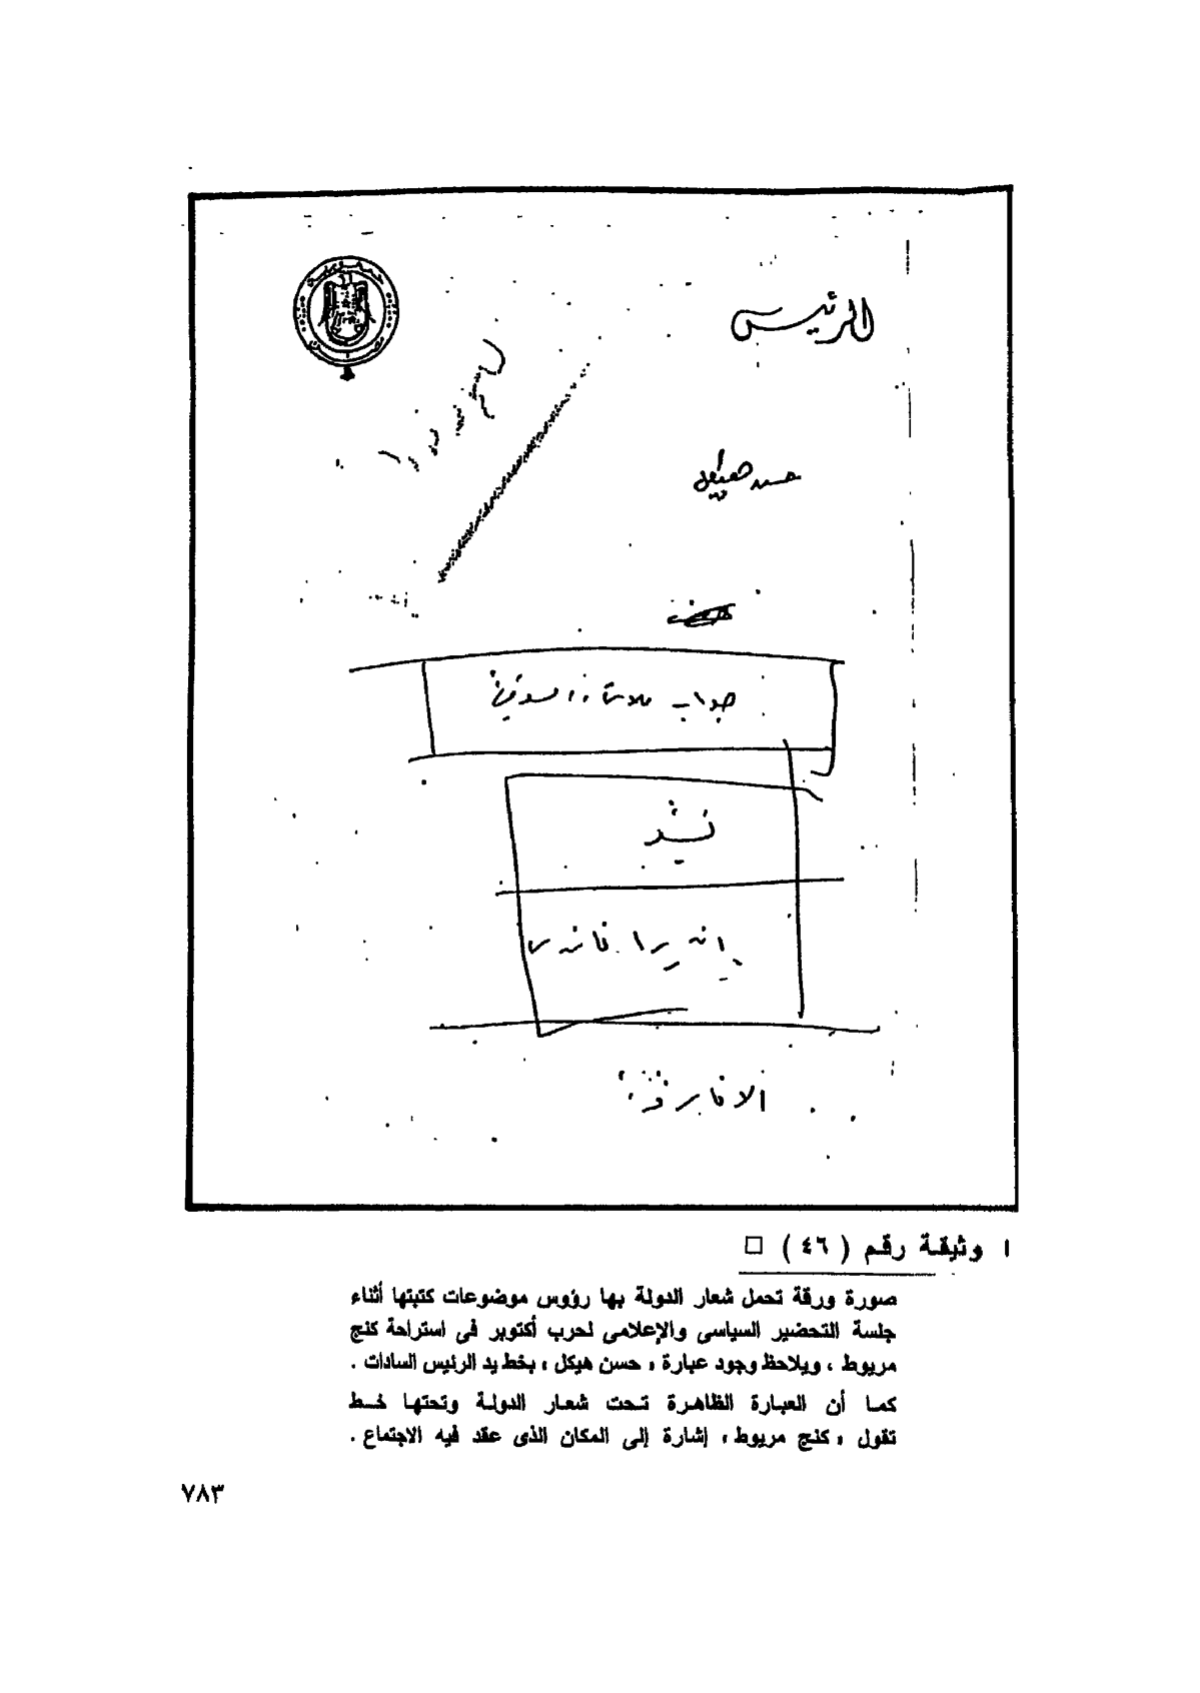 الرئيس
حسن هيكل
جواب للاتحاد السوفيتي
تيتو
انديرا غاندى
الافارقة
١ وثيقة رقم ( ٤٦ ) □
صورة ورقة تحمل شعار الدولة بها رؤوس موضوعات كتبتها أثناء
جلسة التحضير السياسى والإعلامى لحرب أكتوبر فى استراحة كنج
مريوط ، ويلاحظ وجود عبارة « حسن هيكل » بخط يد الرئيس السادات .
كما أن العبارة الظاهرة تحت شعار الدولة وتحتها خط
تقول « كنج مريوط » إشارة إلى المكان الذى عقد فيه الاجتماع .
٧٨٣